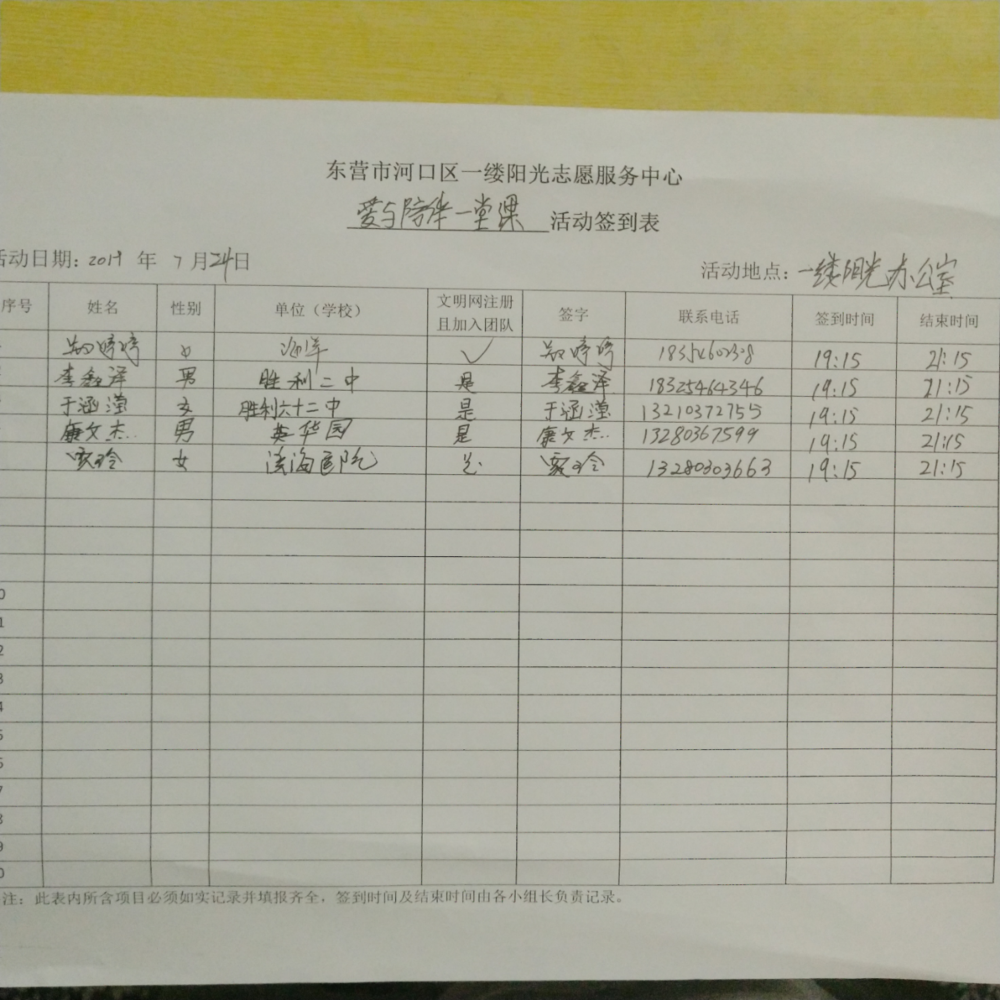 东营市河口区一缕阳光志愿服务中心
爱与陪伴一堂课 活动签到表
活动日期：2019 年 7 月24日 活动地点：一缕阳光办公室
序号 姓名 性别 单位（学校） 文明网注册且加入团队 签字 联系电话 签到时间 结束时间
女 19:15 21:15
李鑫泽 男 胜利二中 是 李鑫泽 18325464346 19:15 21:15
于涵滢 女 胜利六十二中 是 于涵滢 13210372755 19:15 21:15
康文杰 男 英华园 是 康文杰 13280367599 19:15 21:15
女 滨海医院 是 13280303663 19:15 21:15
注：此表内所含项目必须如实记录并填报齐全，签到时间及结束时间由各小组长负责记录。